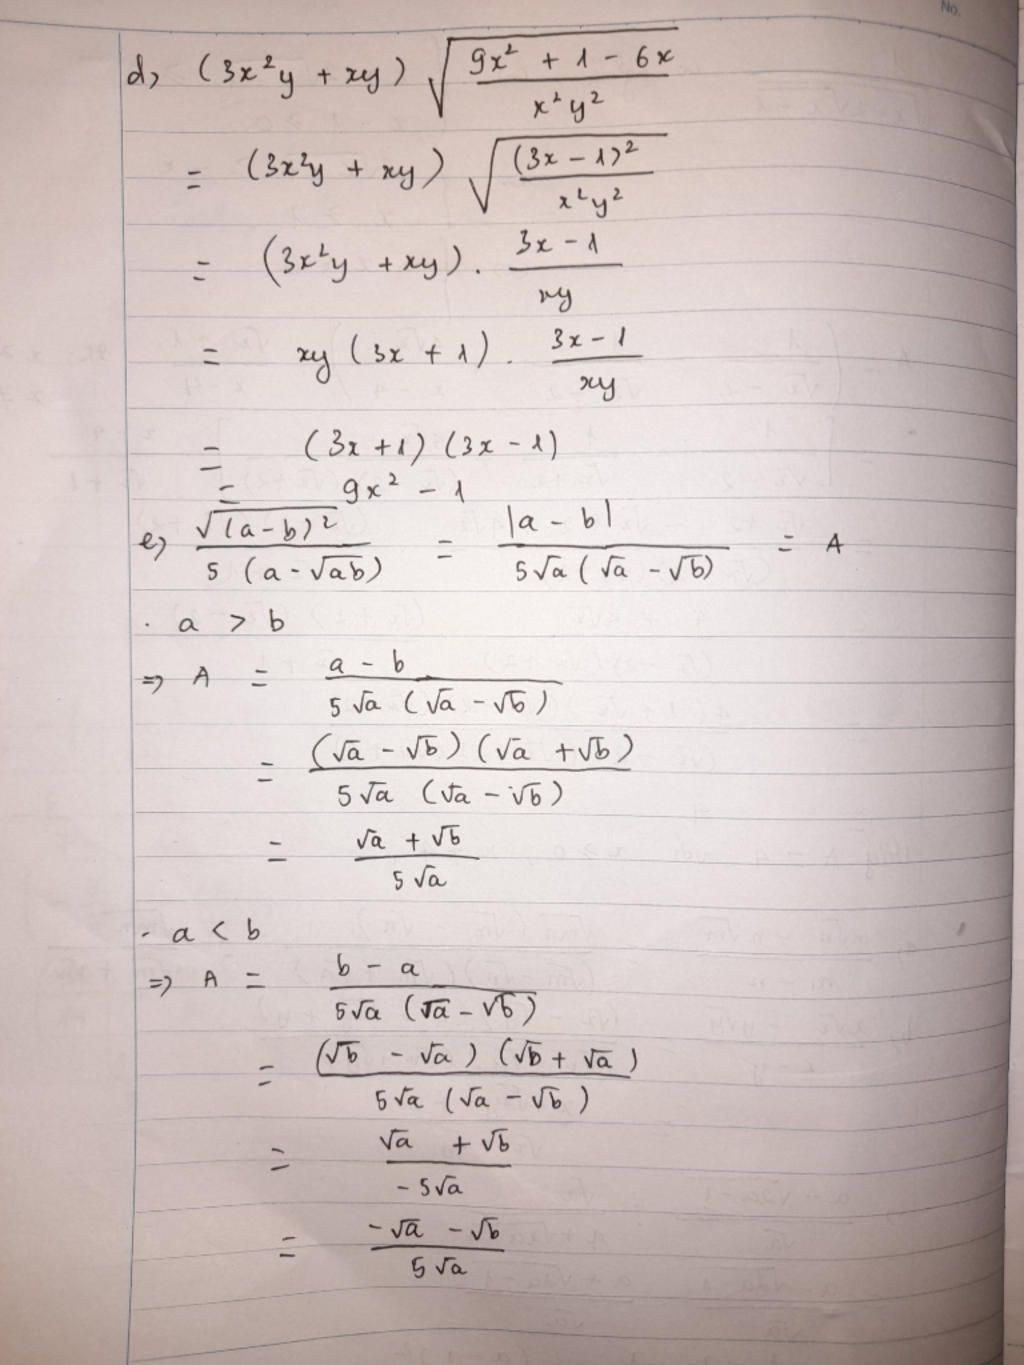 No.
d, (3x²y + xy) √((9x² + 1 - 6x)/(x²y²))
= (3x²y + xy) √((3x - 1)²/(x²y²))
= (3x²y + xy) . (3x - 1)/(xy)
= xy (3x + 1) . (3x - 1)/(xy)
= (3x + 1) (3x - 1)
= 9x² - 1
e, √((a - b)²)/(5 (a - √ab)) = |a - b|/(5√a (√a - √b)) = A
. a > b
=> A = (a - b)/(5√a (√a - √b))
= ((√a - √b) (√a + √b))/(5√a (√a - √b))
= (√a + √b)/(5√a)
. a < b
=> A = (b - a)/(5√a (√a - √b))
= ((√b - √a) (√b + √a))/(5√a (√a - √b))
= (√a + √b)/(-5√a)
= (-√a - √b)/(5√a)